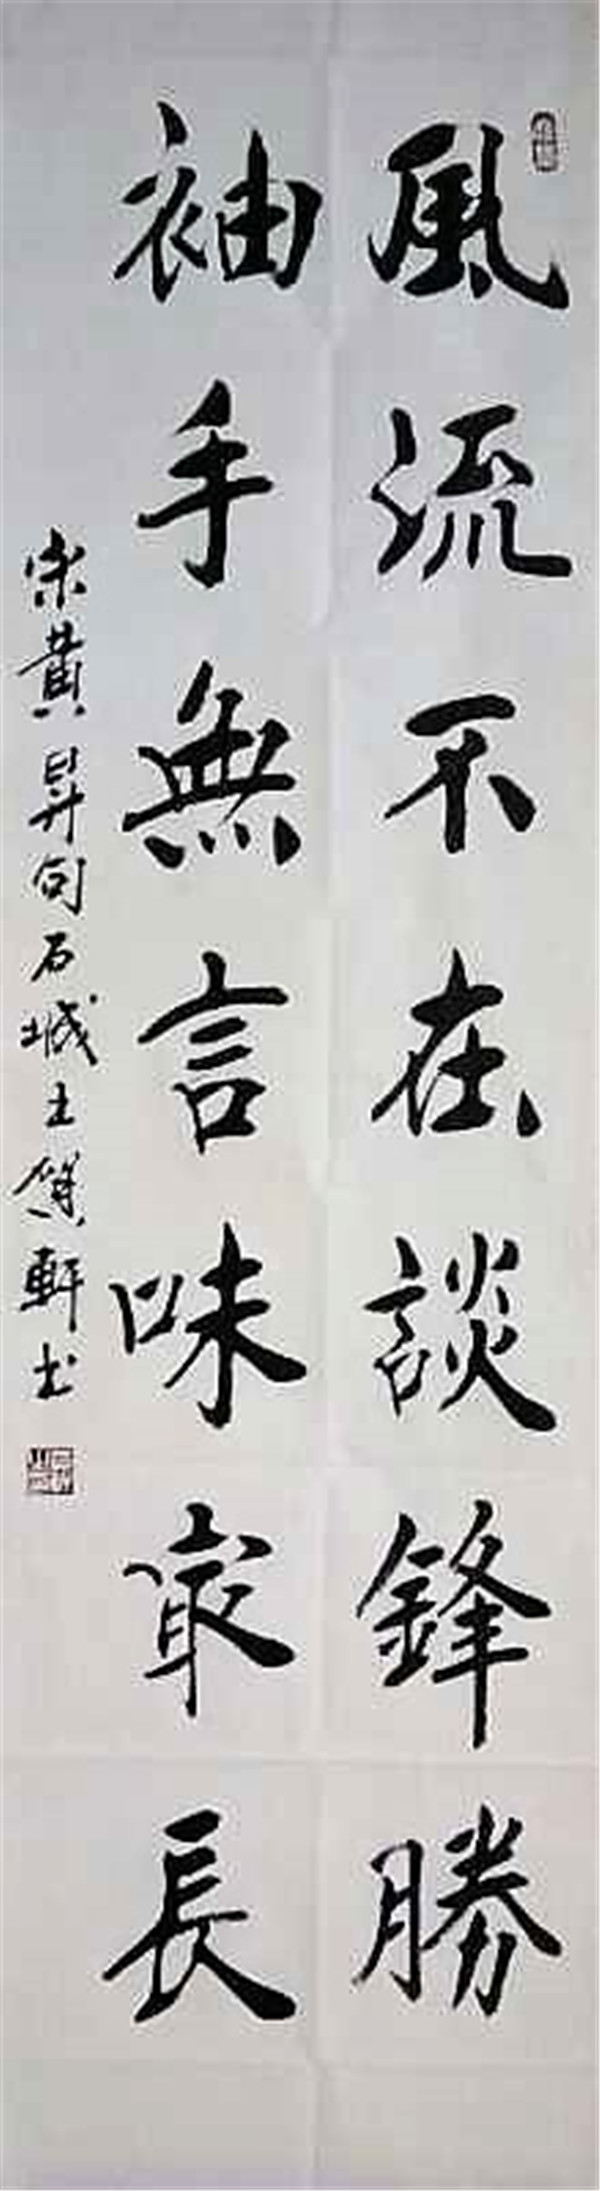 風流不在談鋒勝
袖手無言味最長
宋黃昇句石城王賀軒书